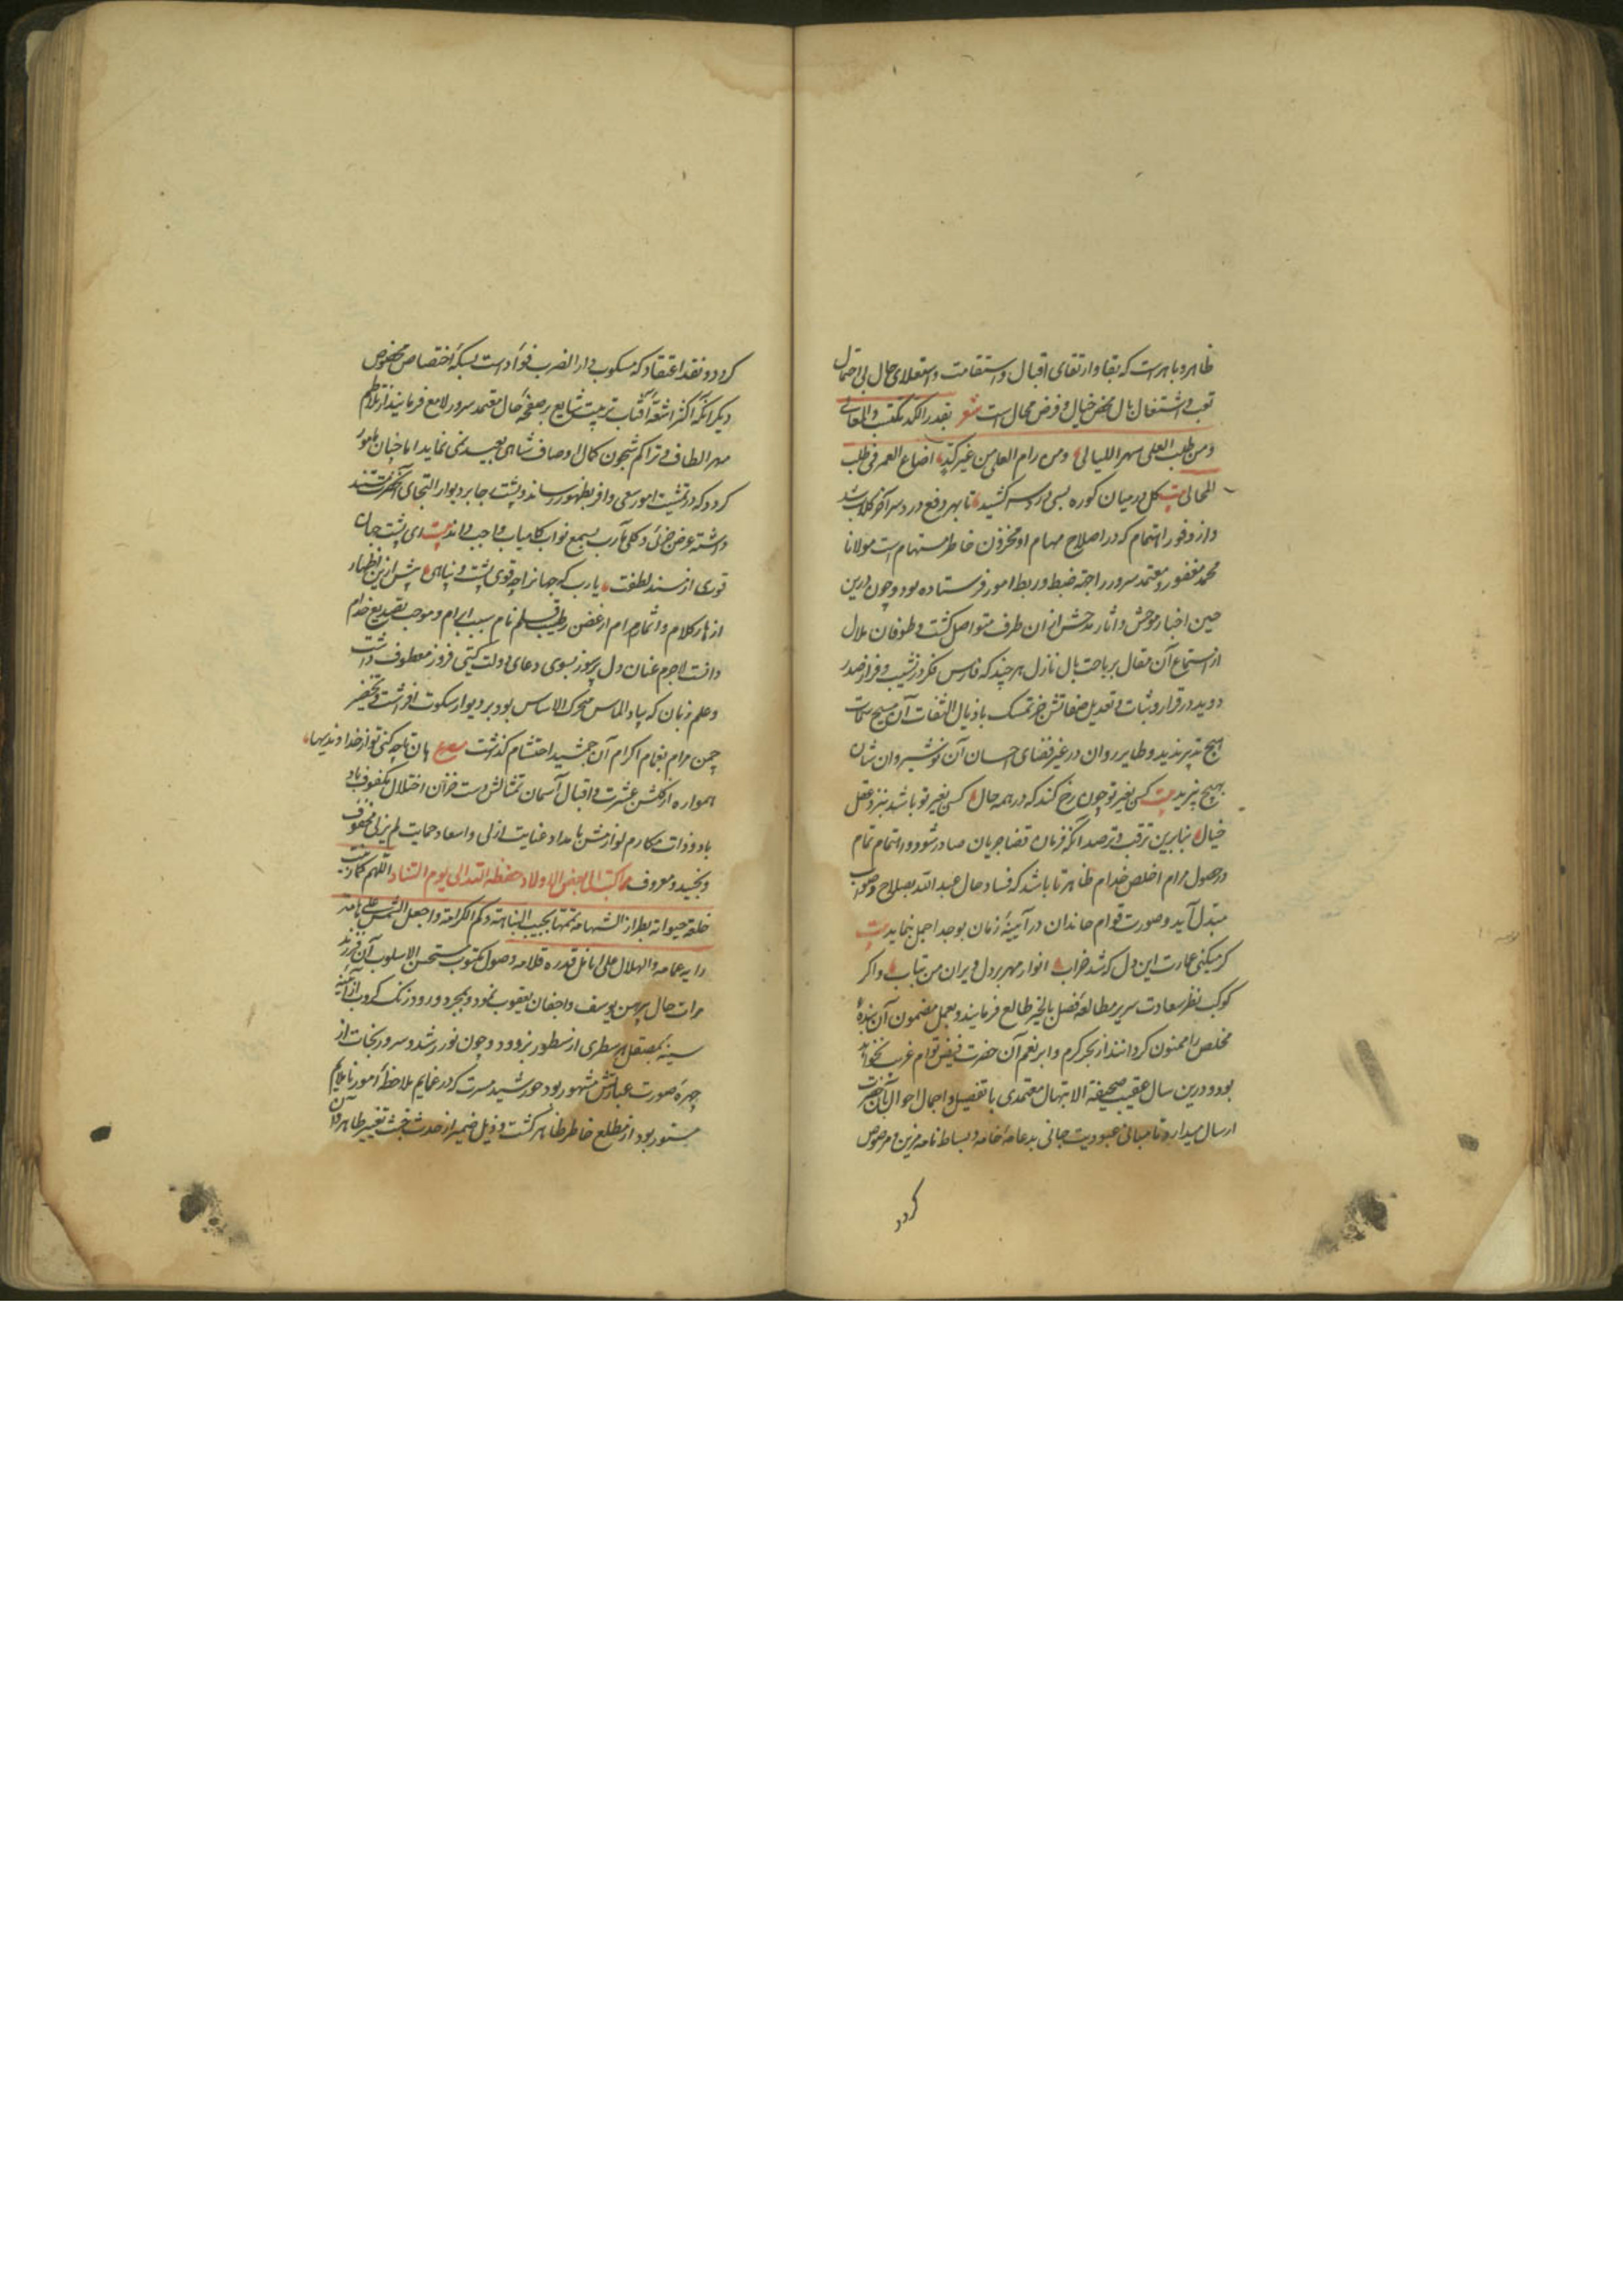 ظاهر و باهر است که بقا و ارتقای اقبال و استقامت و استعلای حال بی احتمال
تعب و اشتغال بال محض خیال و فرض محال است شعر بقدر الکد تکتسب المعالی
ومن طلب العلی سهر اللیالی ومن رام العلی من غیر کد اضاع العمر فی طلب
المحال بیت کل در میان کوره بسی درد سر کشید تا بهر دفع درد سر آخر کلاب شد
و از وفور اهتمام که در اصلاح مهام او مخزون خاطر مستهام است مولانا
محمد مغفور و معتمد سرور را جهة ضبط و ربط امور فرستاده بود و چون درین
حین اخبار موحش و آثار مدهش از ان طرف متواصل کشت و طوفان ملال
از استماع آن مقال بر باحت بال نازل هر چند که فارس فکر در نشیب و فراز صدر
دوید در قرار و ثبات و تعدیل صفاتش جز تمسک باذیال التفات آن مسیح سمات
هیچ تدبیر ندید و طایر روان در غیر فضای احسان آن نوشیروان شان
هیچ نپرید بیت کسی بغیر تو چون رخ کند که در همه حال کسی بغیر تو باشد بنزد عقل
خیال بنابرین ترقب و ترصد آنکه فرمان قضا جریان صادر شود و اهتمام تمام
در حصول مرام اخلص خدام ظاهر تا باشد که فساد حال عبد الله بصلاح و صواب
مبتدل آید و صورت قوام خاندان در آیینه زمان بوجه اجمل نماید بیت
کر میکنی عمارت این دل که شد خراب انوار مهر بر دل ویران من بتاب و اکر
کوکب نظر سعادت سریر مطالعه فصل بالخیر طالع فرمایند و بعمل مضمون آن بنده
مخلص را ممنون کردانند از بحر کرم و ابر نعم آن حضرت فیض قوام غریب نخواهد
بود و درین سال عقیب صحیفة الابتهال معتمدی با تفصیل و اجمال احوال بآن حضرت
ارسال میدارد تا مبانی عبودیت جانی بدعامه خامه و بساط نامه مزین و مرصوص
کردد
کردد و نقد اعتقاد که مسکوب دار الضرب فؤاد است بسکه اختصاص مخصوص
دیکر آنکه اکثر اشعه آفتاب تربیت شایع بر صفحه حال معتمد سرور لامع فرمایند از تلاطم
مهر الطاف و تراکم شجون کمال اوصاف شاهی بعید نمی نماید اما چنان مامور
کردد که در تمشیت امور سعی وافر بظهور رساند و پشت جا بر دیوار التجای آنحضرت مستند
داشته عرض جزئی و کلی مآرب بسمع نواب کامیاب واجب داند بیت ای پشت جان
قوی از سند لطفت یارب که جهانرا چه قوی پشت و پناهی پیش ازین اظهار
ازهار کلام و اثمار مرام از غصن رطیب قلم نام سبب ابرام و موجب تصدیع خدام
دانست لاجرم عنان دل پرسوز بسوی دعای دولت کیتی فروز معطوف داشت
و علم زبان که بیاد الماس محرک الاساس بود بر دیوار سکوت افراشت و تخضیر
چمن مرام بغمام اکرام آن جمشید احتشام کذاشت مصرع هان تا چه کنی تو از خداوندیها
همواره از کلشن عشرت و اقبال آسمان تمثالش دست خزان اختلال مکفوف باد
باد و ذات مکارم لوازمش بامداد عنایت ازلی و اسعاد حمایت لم یزلی محفوف
و بخیید و معروف مما کتب الی بعض الاولاد حفظه الله الی یوم التناد اللهم کما زینت
خلعة حیوانه بطراز الشهامة تمتها بجیب النباهة و کم الکرامة و اجعل الشمس علی هامة
رایه عمامه و الهلال علی انامل قدره قلامه وصول مکتوب مستحسن الاسلوب آن فرزند
مرات حال پیرهن یوسف و اجفان یعقوب نمود و بمجرد ورود زنک کروب از آئینه
سینه بمصقل هر سطری از سطور بزدود و چون نور رشد و سرور نجات از
چهره صورت عباراتش مشهور بود خورشید مسرت که در غمایم ملاحظه امور نا ملایم
مستور بود از مطلع خاطر ظاهر کشت و ذیل ضمیر از حدث خبث تغییر طاهر و از آن